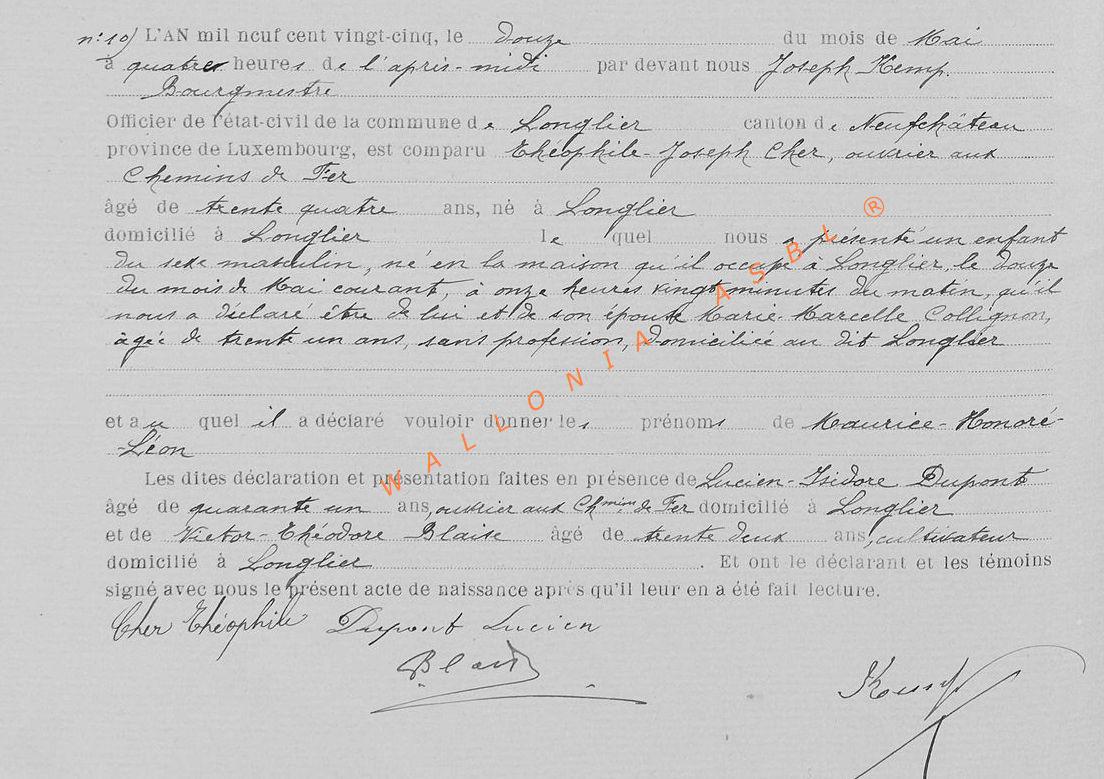 n: 10/ L'AN mil neuf cent vingt-cinq, le douze du mois de Mai
à quatre heures de l'après-midi par devant nous Joseph Kemp.
Bourgmestre
Officier de l'état-civil de la commune de Longlier canton de Neufchâteau
province de Luxembourg, est comparu Théophile-Joseph Cher, ouvrier aux
Chemins de Fer
âgé de trente quatre ans, né à Longlier
domicilié à Longlier le quel nous a présenté un enfant
du sexe masculin, né en la maison qu'il occupe à Longlier, le douze
du mois de Mai courant, à onze heures vingt minutes du matin, qu'il
nous a déclaré être de lui et de son épouse Marie-Marcelle Collignon,
âgée de trente un ans, sans profession, domiciliée au dit Longlier
et au quel il a déclaré vouloir donner les prénoms de Maurice-Honoré-
Léon
Les dites déclaration et présentation faites en présence de Lucien-Isidore Dupont
âgé de quarante un ans, ouvrier aux Chmins de Fer domicilié à Longlier
et de Victor-Théodore Blaise âgé de trente deux ans, cultivateur
domicilié à Longlier. Et ont le déclarant et les témoins
signé avec nous le présent acte de naissance après qu'il leur en a été fait lecture.
Cher Théophile Dupont Lucien
Blaise
Kemp
WALLONIA ASBL ®